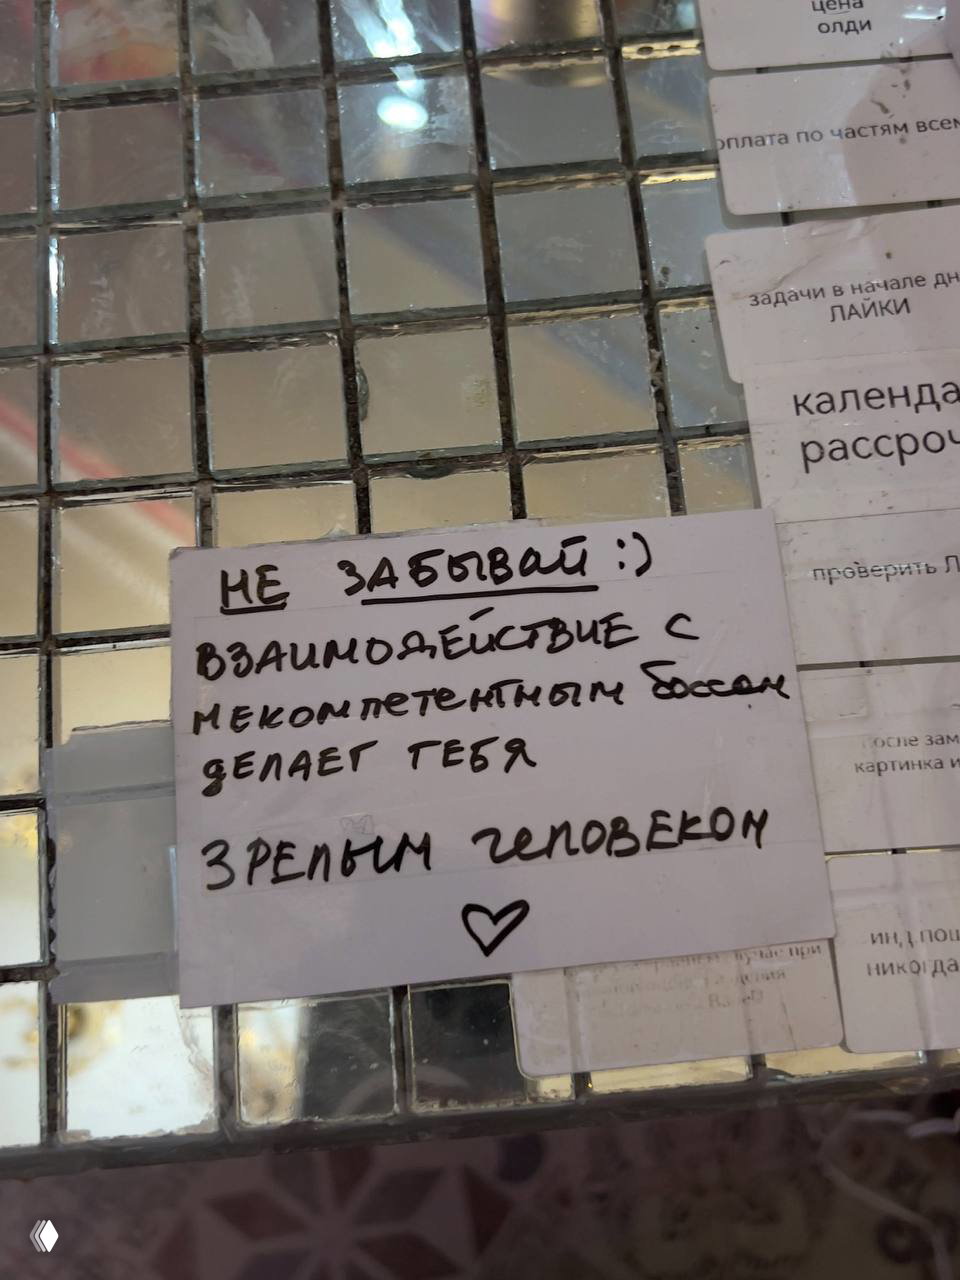 цена
олди
оплата по частям всем
задачи в начале дн
ЛАЙКИ
календа
рассроч
проверить Л
после зам
картинка и
никогда
НЕ ЗАБЫВАЙ :)
ВЗАИМОДЕЙСТВИЕ С
НЕКОМПЕТЕНТНЫМ боссом
ДЕЛАЕТ ТЕБЯ
ЗРЕЛЫМ ЧЕЛОВЕКОМ